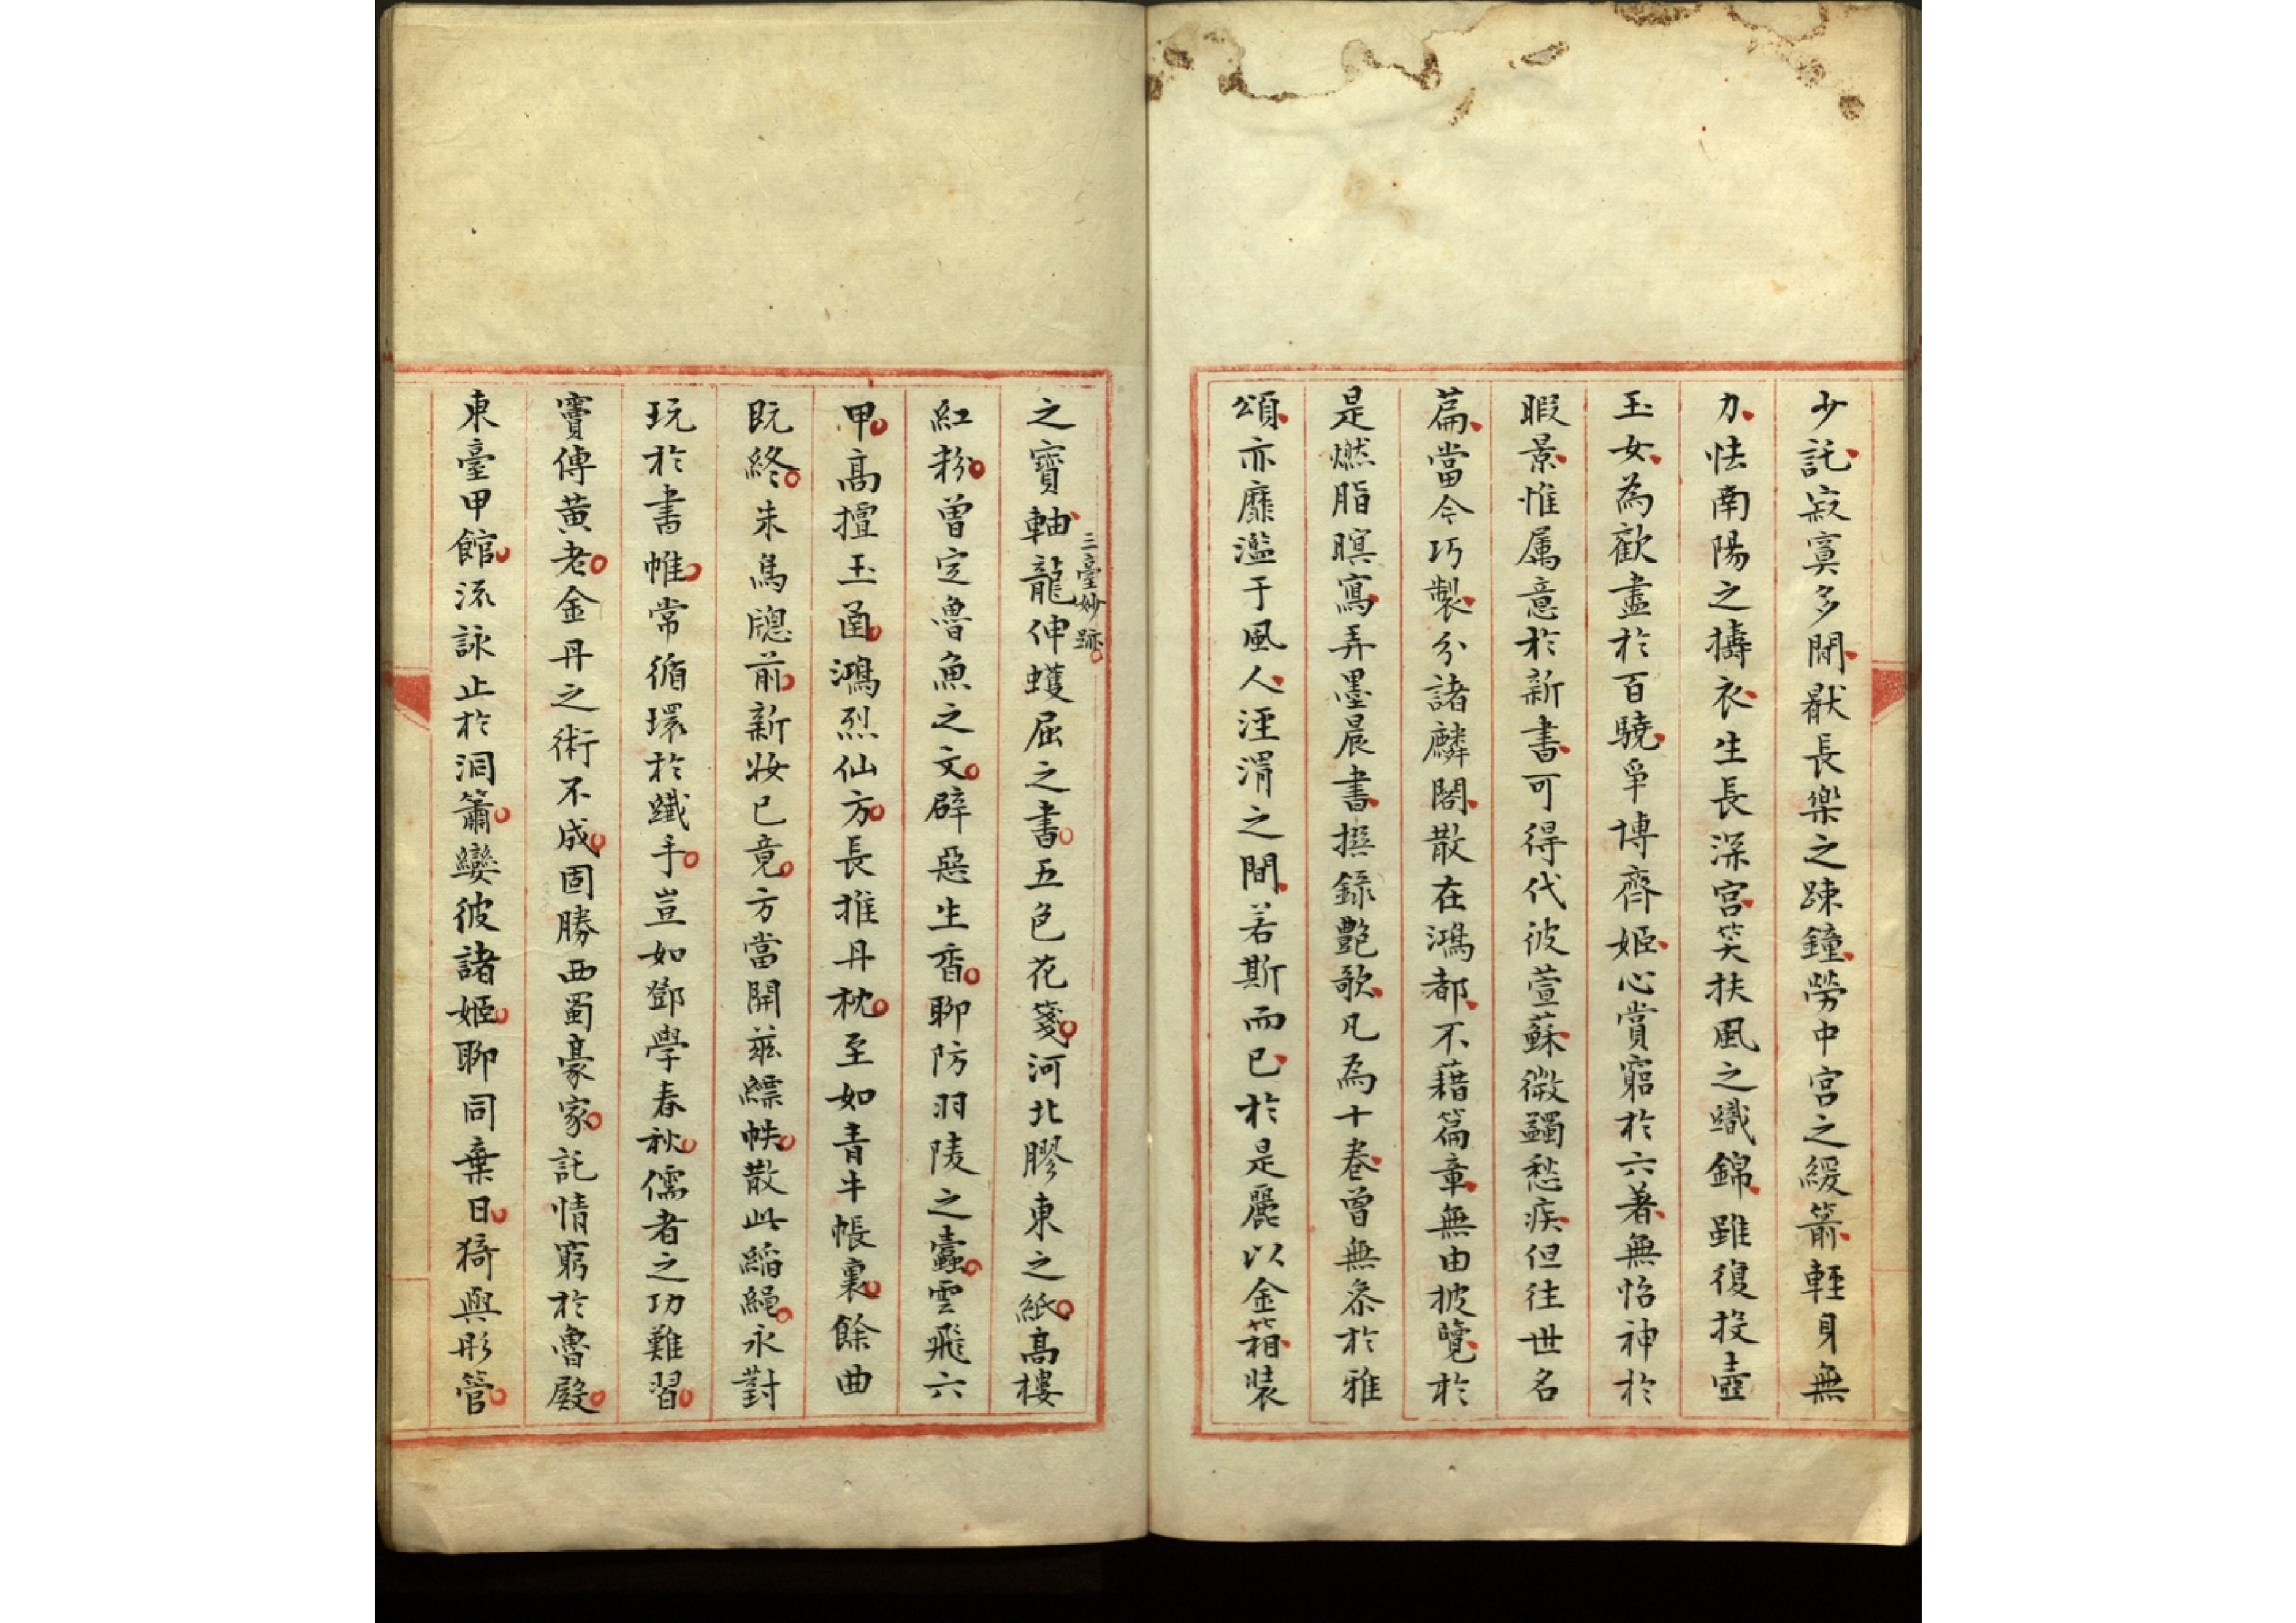 少託寂寞多閒猒長樂之踈鐘勞中宮之緩箭輕身無
力怯南陽之擣衣生長深宮笑扶風之織錦雖復投壺
玉女為歡盡於百驍爭博齊姬心賞窮於六著無怡神於
暇景惟属意於新書可得代彼萱蘇微蠲愁疾但往世名
篇當今巧製分諸麟閣散在鴻都不藉篇章無由披覽於
是燃脂暝寫弄墨晨書撰錄艷歌凡為十卷曾無忝於雅
頌亦靡濫于風人涇渭之間若斯而已於是麗以金箱裝
之寶軸三臺妙跡龍伸蠖屈之書五色花箋河北膠東之紙高樓
紅粉曾定魯魚之文辟惡生香聊防羽陵之蠹雲飛六
甲高擅玉函鴻烈仙方長推丹枕至如青牛帳裏餘曲
既終朱鳥牕前新妝已竟方當開茲縹帙散此縚繩永對
玩於書帷常循環於纖手豈如鄧學春秋儒者之功難習
竇傳黃老金丹之術不成固勝西蜀豪家託情窮於魯殿
東臺甲館流詠止於洞簫孌彼諸姬聊同棄日猗與彤管